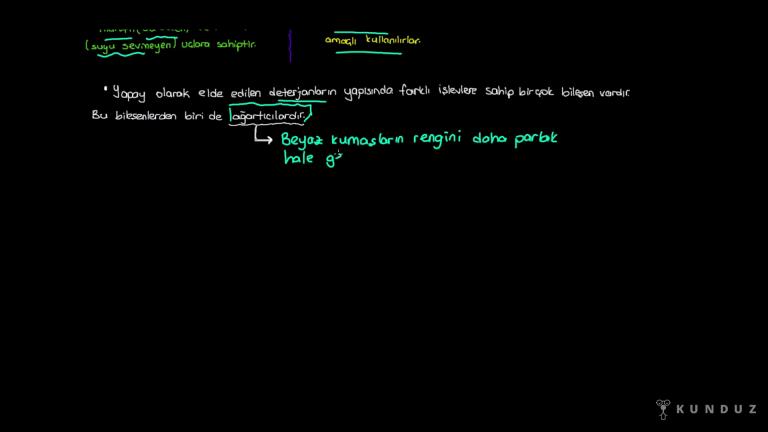 (suyu sevmeyen) uçlara sahiptir.
amaçlı kullanılırlar.
• Yapay olarak elde edilen deterjanların yapısında farklı işlevlere sahip birçok bileşen vardır.
Bu bileşenlerden biri de ağartıcılardır.
Beyaz kumaşların rengini daha parlak
hale g
KUNDUZ